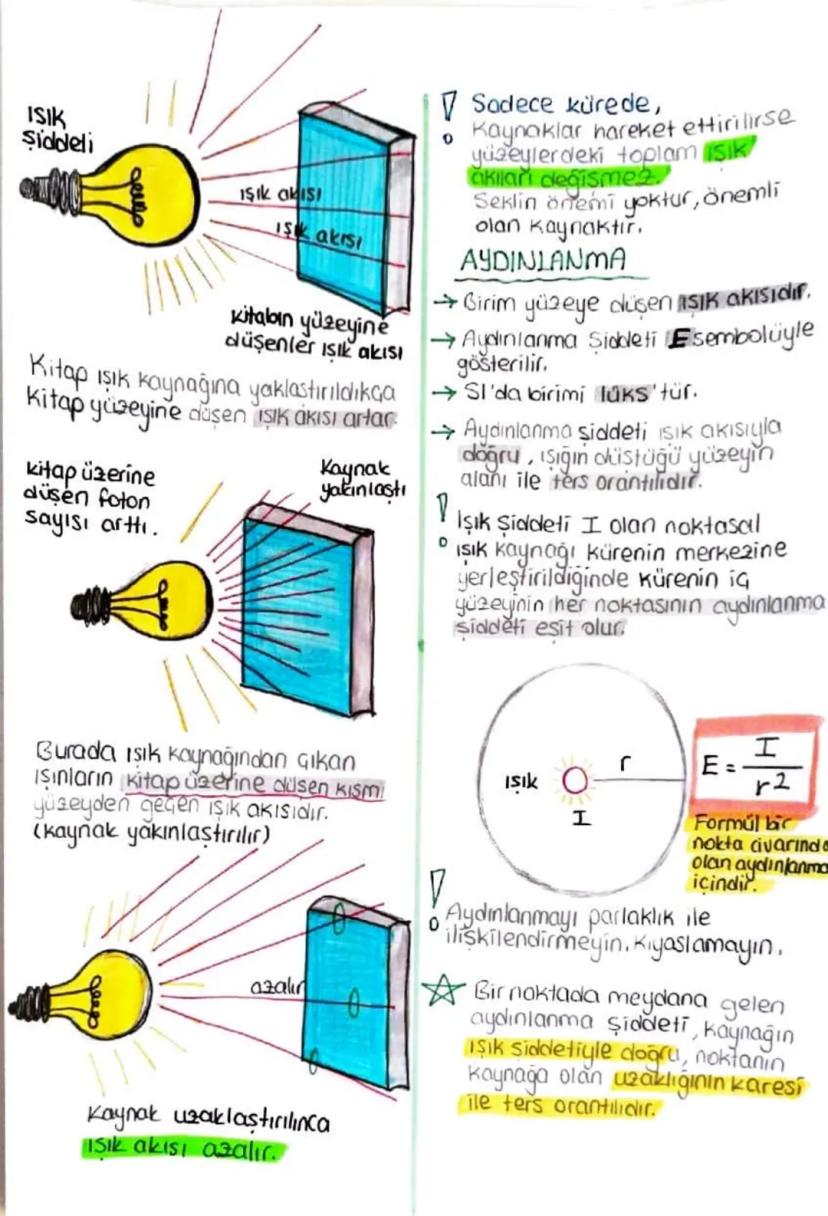 Işık
Şiddeti
ışık akısı
ışık akısı
Kitabın yüzeyine
düşenler ışık akısı
Kitap ışık kaynağına yaklaştırıldıkça
Kitap yüzeyine düşen ışık akısı artar.
kitap üzerine
düşen foton
sayısı arttı.
Kaynak
yakınlaştı
Burada ışık kaynağından çıkan
ışınların kitap üzerine düşen kısmı
yüzeyden geçen ışık akısıdır.
(kaynak yakınlaştırılır)
azalır
Kaynak uzaklaştırılınca
ışık akısı azalır.
! Sadece kürede,
Kaynaklar hareket ettirilirse
yüzeylerdeki toplam ışık
akıları değişmez.
Şeklin önemi yoktur, önemli
olan kaynaktır.
AYDINLANMA
→ Birim yüzeye düşen ışık akısıdır.
→ Aydınlanma Şiddeti E sembolüyle
gösterilir.
→ SI'da birimi lüks'tür.
→ Aydınlanma şiddeti ışık akısıyla
doğru, ışığın düştüğü yüzeyin
alanı ile ters orantılıdır.
! Işık Şiddeti I olan noktasal
ışık kaynağı kürenin merkezine
yerleştirildiğinde kürenin iç
yüzeyinin her noktasının aydınlanma
şiddeti eşit olur.
ışık
r
I
E = I / r²
Formül bir
nokta civarında
olan aydınlanma
içindir.
! Aydınlanmayı parlaklık ile
ilişkilendirmeyin, kıyaslamayın.
☆ Bir noktada meydana gelen
aydınlanma şiddeti, kaynağın
ışık şiddetiyle doğru, noktanın
kaynağa olan uzaklığının karesi
ile ters orantılıdır.